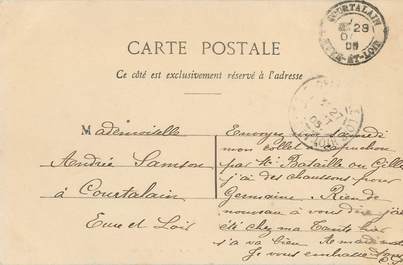 COURTALAIN
28
EURE-ET-LOIR
CARTE POSTALE
Ce côté est exclusivement réservé à l'adresse
Mademoiselle
Andrée Samson
à Courtalain
Eure et Loir
Envoyez moi samedi
mon collet capuchon
par Mr Bataille ou Gilles
j'ai des chaussons pour
Germaine Rien de
nouveau à vous dire j'ai
été chez ma Tante
s'a va bien A
Je vous embrasse